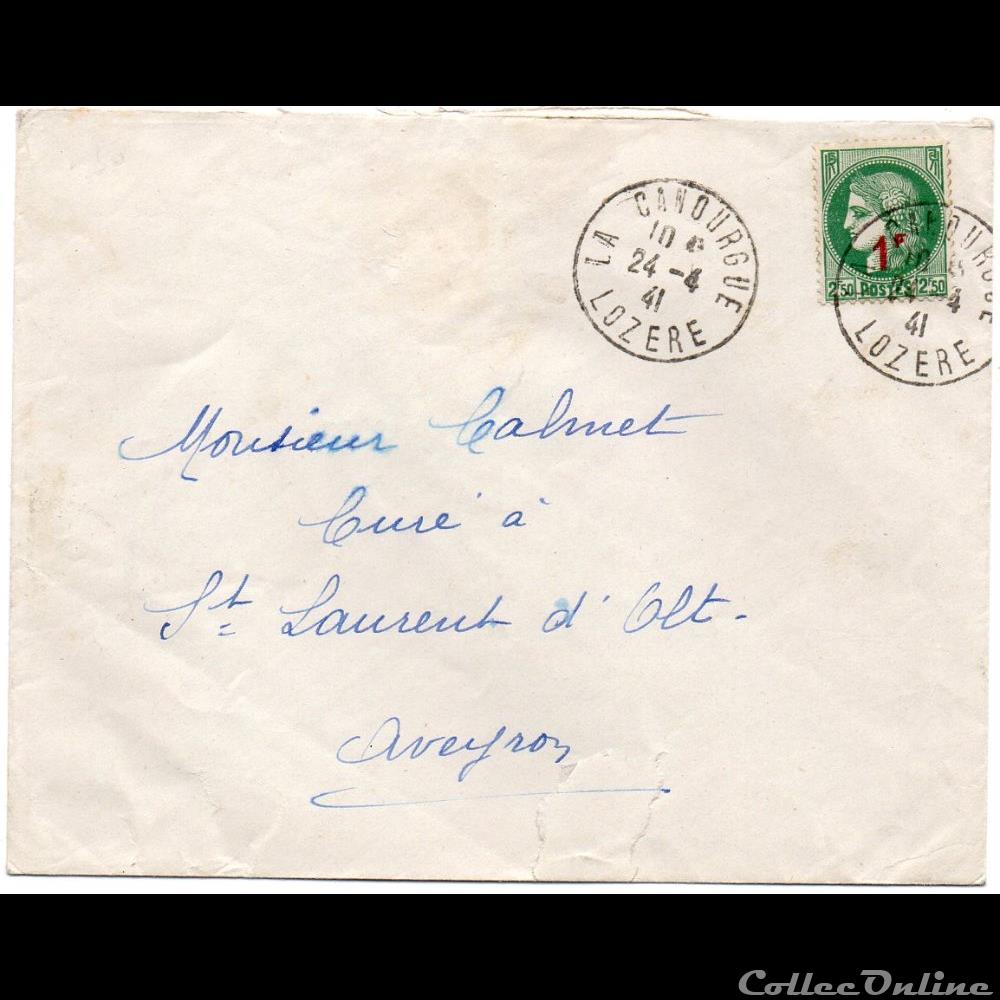 LA CANOURGUE
10
24 - 4
41
LOZERE
1F
2F50 POSTES 2F50
CANOURGUE
24 - 4
41
LOZERE
Monsieur Calmet
Curé à
St Laurent d'Olt.
Aveyron
ColleeOnline